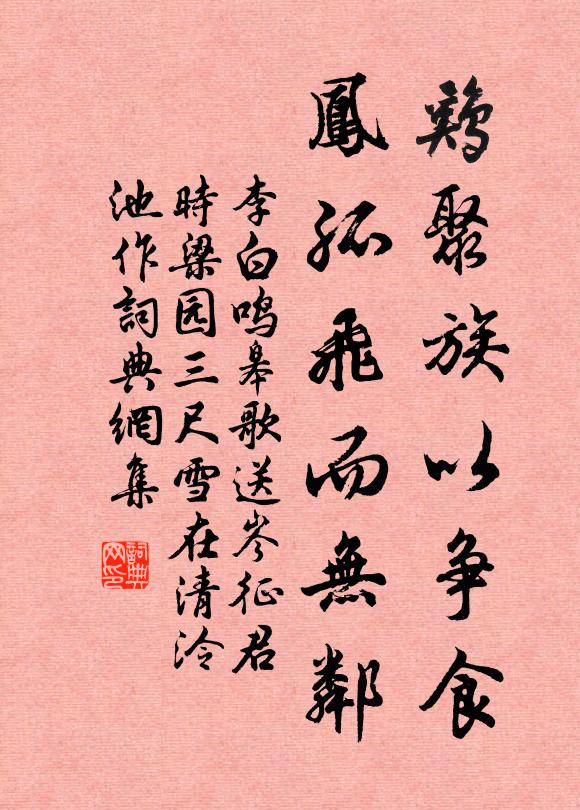 鷄聚族以争食
鳳孤飛而無鄰
李白鸣皋歌送岑征君
時梁园三尺雪在清泠
池作詞典網集
詞典网印